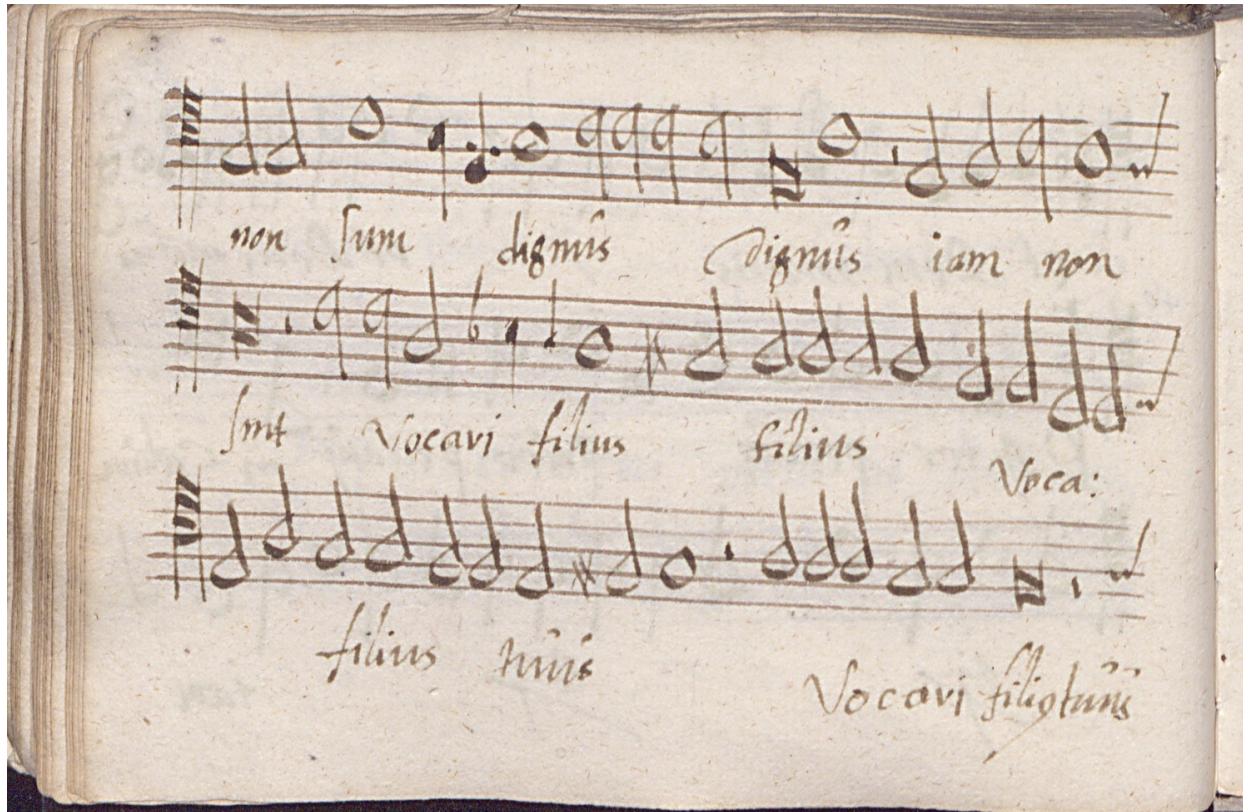 non sum dignus dignus iam non
sint vocari filius filius Voca:
filius tuus Vocari filiꝯ tuus